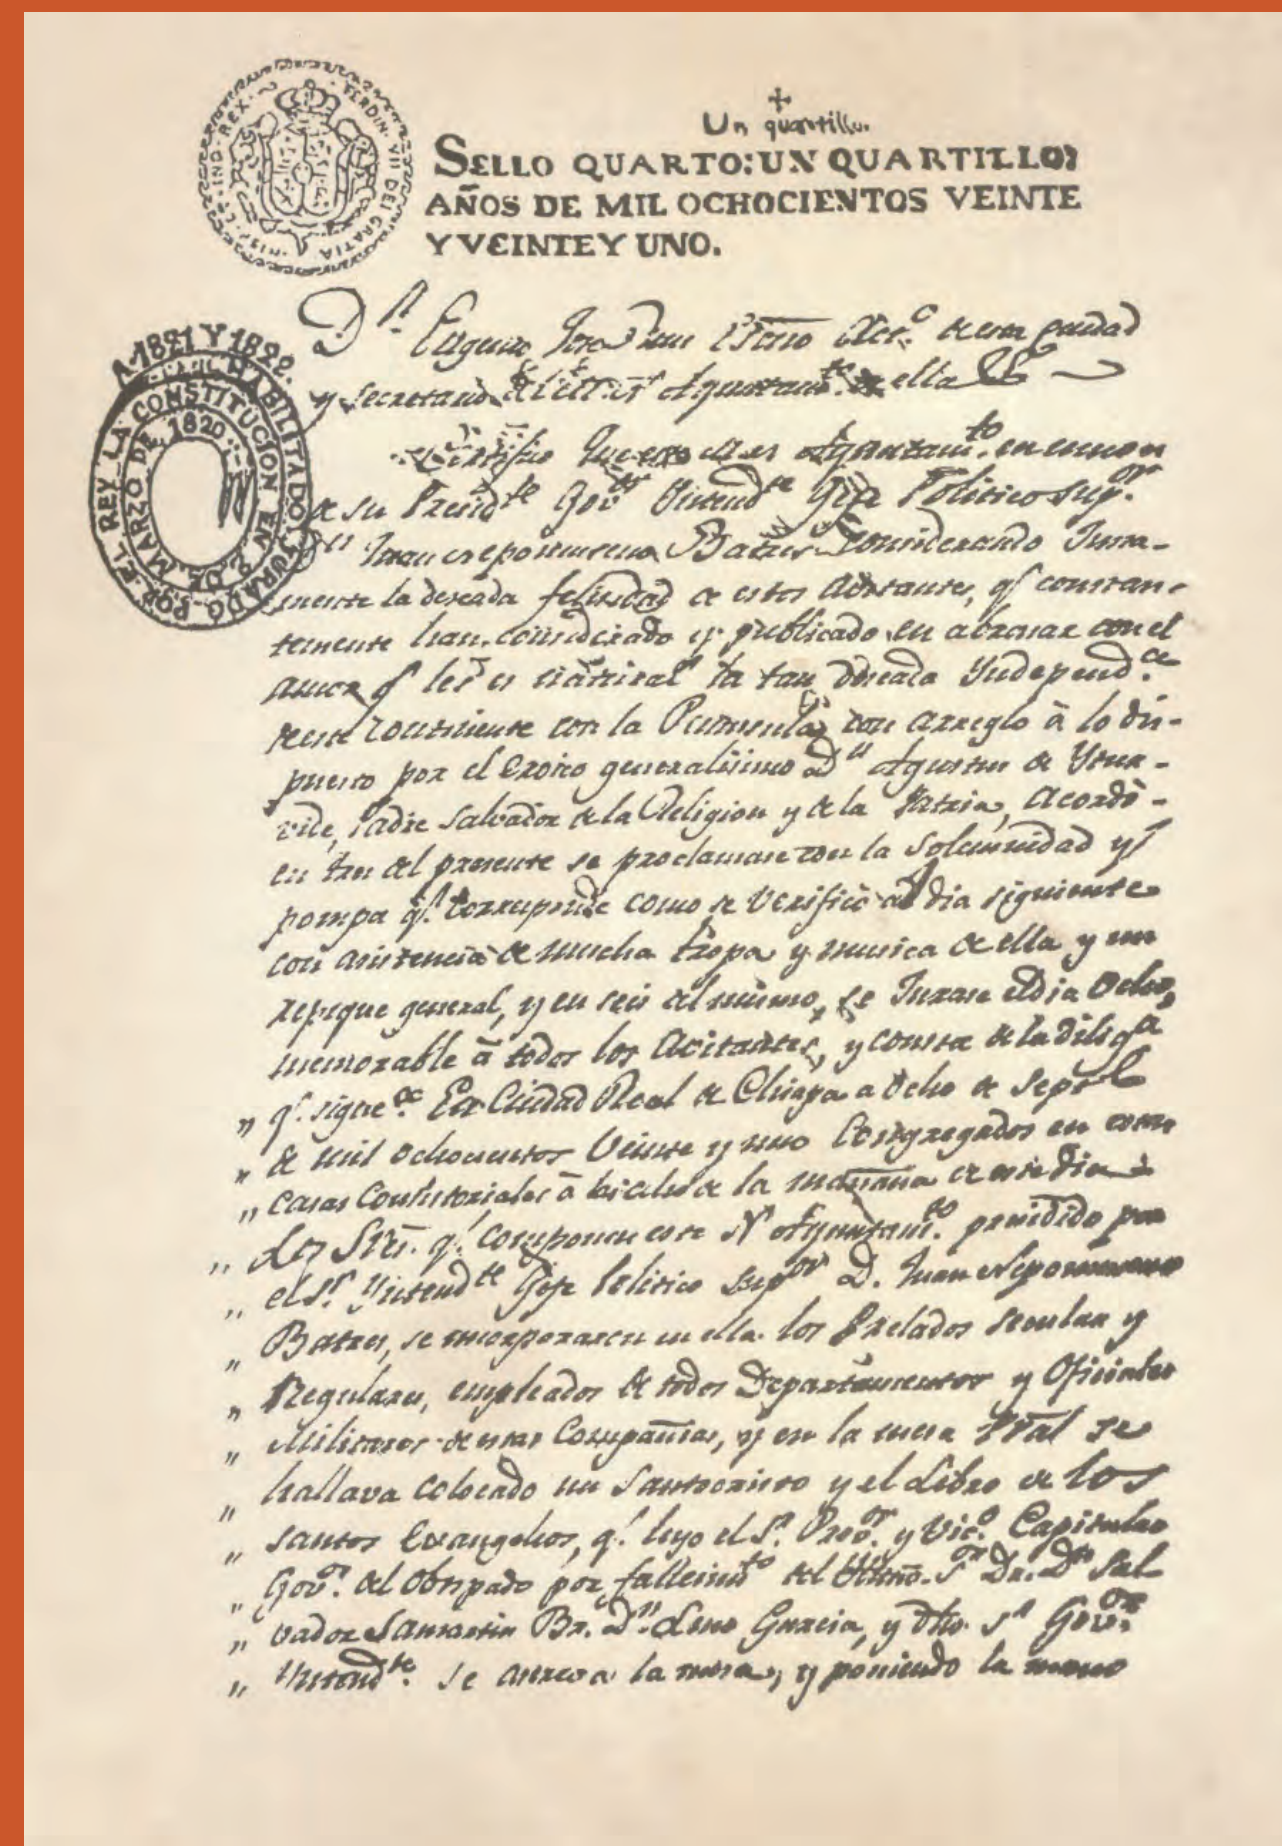 Un quartillo.
SELLO QUARTO: UN QUARTILLO;
AÑOS DE MIL OCHOCIENTOS VEINTE
Y VEINTE Y UNO.
FERDIN. VII DEI GRATIA
HISP. ET IND. REX
A. 1821 Y 1822.
HABILITADO, JURADO POR EL REY LA CONSTITUCION EN 9. DE MARZO DE 1820
Dn. Eugenio José Ruiz Essno Actc. de esta Ciudad
y Secretario del Ayuntamto. de ella
Certifico Que este Ayuntamto. en union
de su Presidte Govor Yntendte Gefe Politico supor.
Dn Juan Nepomuseno Batres Considerando
mente la deseada felicidad de estos Abitantes, q. constan-
temente han considerado y publicado en abrazar con el
amor q les es natural la tan deseada Yndependca.
de este Continente con la Peninsula, con arreglo à lo dis-
puesto por el Exmo generalisimo Dn Agustin de Ytur-
vide, Padre Salvador de la Religion y de la Patria, acordó
en tres del presente se proclamase con la solemnidad y
pompa q. corresponde como se verificó al dia siguiente
con asistencia de mucha tropa y musica de ella y un
repique general, y en seis del mismo, se Jurase el dia Ocho,
memorable à todos los Avitantes, y consta de la diliga
„ q. sigue. En Ciudad Real de Chiapa a Ocho de Sepre
„ de mil ochocientos Veinte y uno Congregados en estas
„ casas Consistoriales à las ocho de la mañana de este dia
„ Los Sres. q. componen este N Ayuntamto. precidido por
„ el Sr. Yntendte Gefe Politico Supor D. Juan Nepomuseno
„ Batres, se incorporaron en ella los Prelados Secular y
„ Regulares, empleados de todos Departamentos y Oficiales
„ Militares de estas Compañias, y en la mesa Pral se
„ hallava colocado un Santocristo y el Libro de los
„ santos Evangelios, q. leyo el Sr. Provor. y Vico. Capitular
„ Govor. del Obispado por fallecimto del Sor Dr. Dn Sal
„ vador Samartin Br. Dn. Lino Garcia, y dho. Sr Govor.
„ Yntendte. se acerco a la mesa, y poniendo la mano